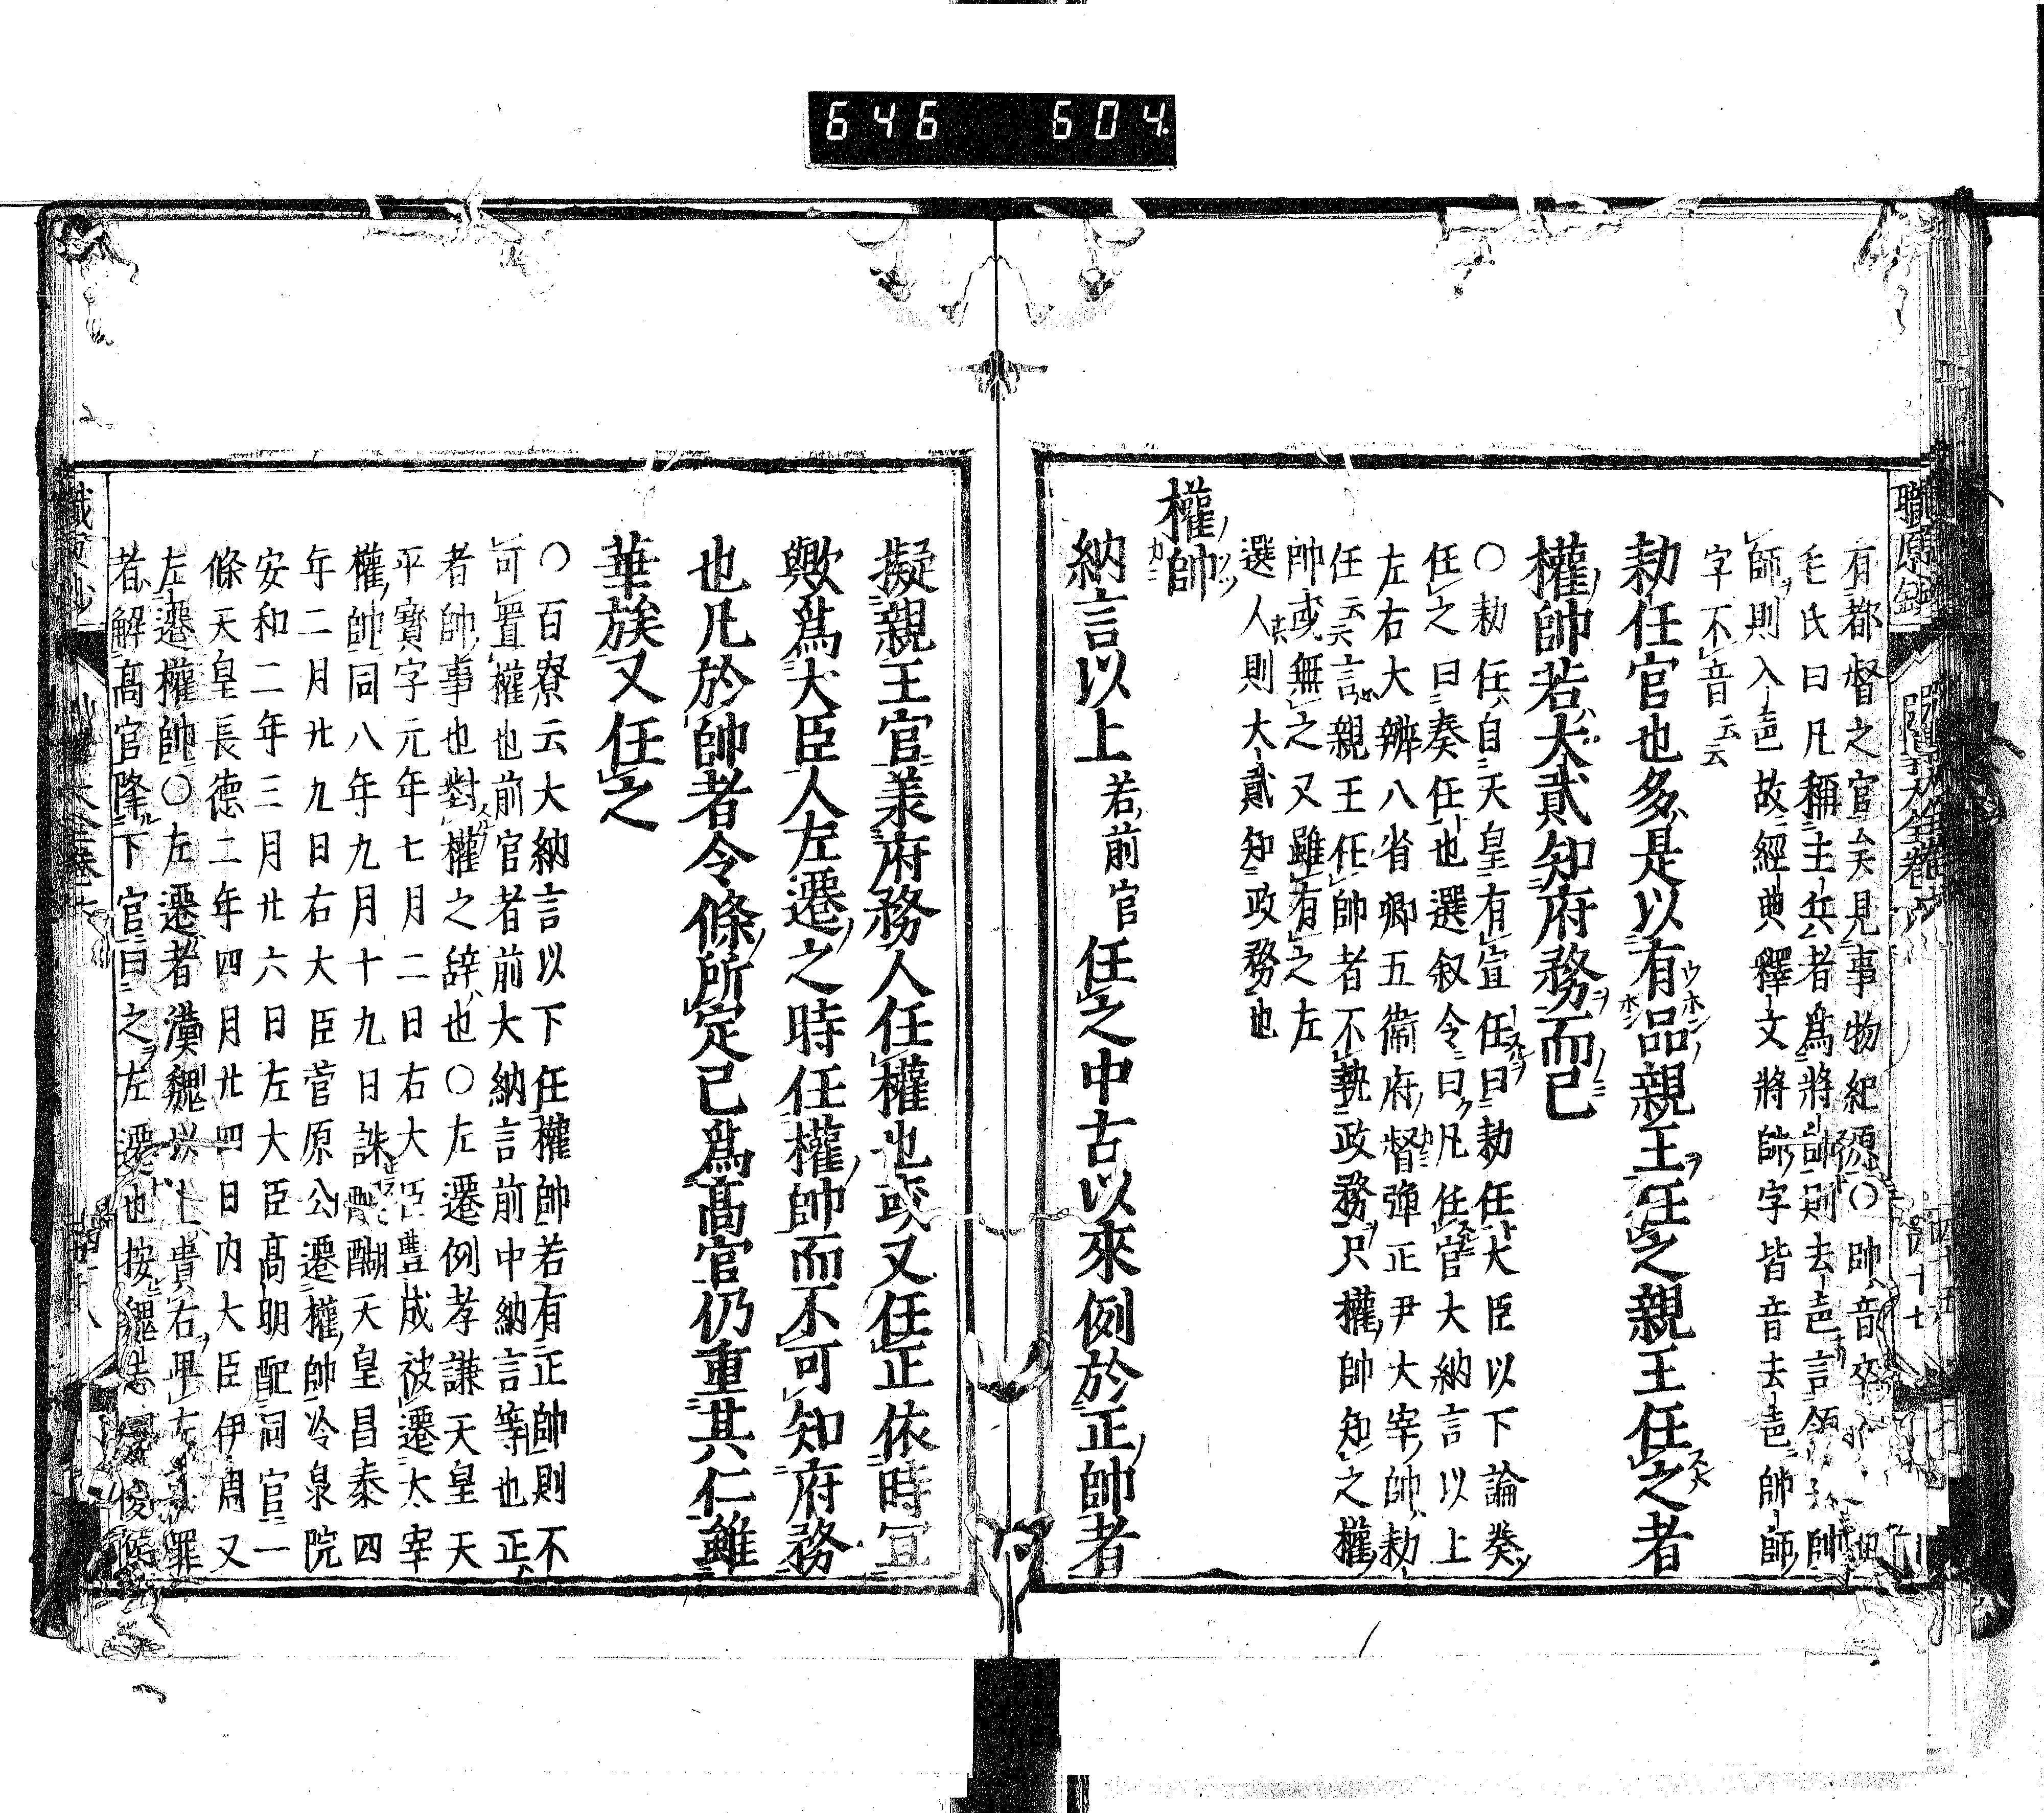 646 604
有都督之官云云見事物紀源〇帥音卒
毛氏曰凡稱主兵者爲將帥則去声言領
師則入声故經典釋文將帥字皆音去声帥師
字不音云云
勅任官也多是以有品親王任之親王任之者
權帥若大貳知府務而已
〇勅任自天皇有宣任曰勅任大臣以下論奏
任之曰奏任也選叙令曰凡任官大納言以上
左右大辨八省卿五衞府督彈正尹大宰帥勅
任云云言親王任帥者不執政務只權帥知之權
帥或無之又雖有之左
選人則大貳知政務也
權帥
納言以上若前官任之中古以來例於正帥者
擬親王官羕府務人任權也或又任正依時宜
歟爲大臣人左遷之時任權帥而不可知府務
也凡於帥者令條所定已爲髙官仍重其仁雖
華族又任之
〇百寮云大納言以下任權帥若有正帥則不
可置權也前官者前大納言前中納言等也正
者帥事也對權之辞也〇左遷例孝謙天皇天
平寶字元年七月二日右大臣豊成被遷太宰
權帥同八年九月十九日誅醍醐天皇昌泰四
年二月廿九日右大臣菅原公遷權帥冷泉院
安和二年三月廿六日左大臣髙明配同官一
條天皇長德二年四月廿四日内大臣伊周又
左遷權帥〇左遷者漢魏以上貴右卑左
罪
者解髙官降下官曰之左遷也按魏志